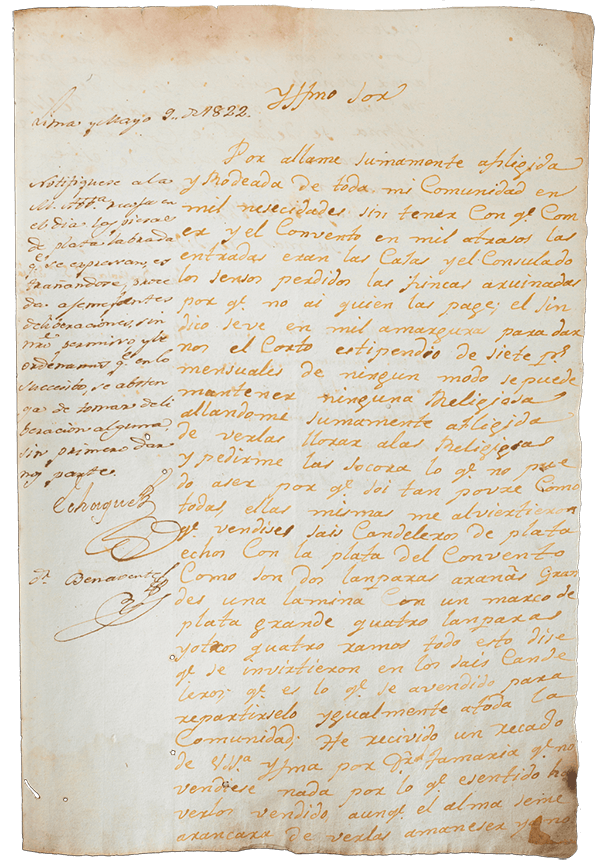 Yllmo Sor
Lima y Mayo 9,, de 1822.
Notifiquese a la
M. Abta. recoja en
el dia las piezas
de plata labrada
q. se expresan, es
trañandose, proce
da a semejantes
deliberaciones, sin
nro. permiso, y le
ordenamos q. en lo
succesivo se absten
ga de tomar deli
beracion alguna,
sin primero dar
nos parte.
Echague
Dr. Benavente
Por allame sumamente afligida
y Rodeada de toda mi Comunidad en
mil nesecidades sin tener Con qe. Com
er y el Convento en mil atrasos las
entradas eran las Cajas y el Consulado
los sensos perdidos las fincas aruinadas
por qe. no ai quien las page; el sin
dico seve en mil amargura para dar
nos el Corto estipendio de siete ps.
mensuales de ningun modo sepuede
mantener ninguna Religiosa
allandome sumamente afligida
de verlas llorar alas Religiosas
y pedirme las socora lo qe. no pue
do aser por qe. soi tan povre Como
todas, ellas mismas me alvirtieron
qe. vendises sais Candeleros de plata
echos Con la plata del Convento
Como son dos lanparas arañas Gran
des una lamina Con un marco de
plata grande quatro lanparas
yotros quatro ramos todo esto dise
qe. se invirtieron en los sais Cande
leros; qe. es lo qe. se avendido para
repartirselo ygualmente atoda la
Comunidad. He recivido un recado
de VSa. Yllma por qe. no
vendiese nada por lo qe. esentido
verlos vendido, aunqe. el alma seme
arancara de verlas amaneser y